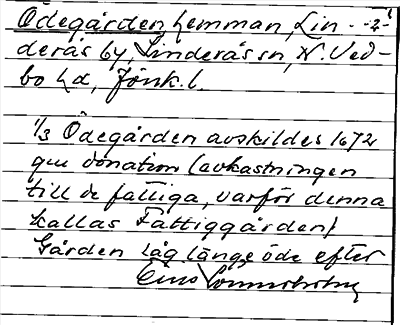 Ödegården, hemman, Lin- -2-
derås by, Linderås sn, N. Ved-
bo hd, Jönk. l.
1/3 Ödegården avskildes 1672
gm donation (avkastningen
till de fattiga, varför denna
kallas Fattiggården)
Gården låg länge öde efter